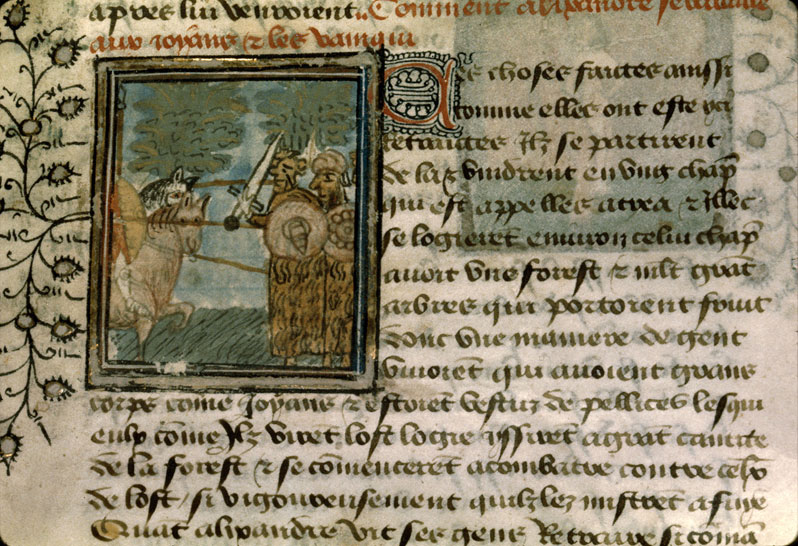 apres lui venroient. Comment alixandre se combati
aux joyans & les vainqui
Ces choses faictes ainssi
comme elles ont este ycy
retraictes Jlz se partirent
de la & vindrent en vng chāp
qui est appelles actea & Jllec
se logierēt enuiron celui chāp
auoit vne forest & mlt grāt
arbres qui portoient fruit
donc vne maniere de gent
viuoiēt qui auoient grans
corps come Joyans & estoiēt vestuz de pellices lesqui
eulx cōme Jlz virēt lost logie yssirēt a grāt cantite
de la forest & se cōmencerēt a combatre contre ceulx
de lost, si vigoureusement quilz lez mistrēt a fuye
Quāt alixandre vit ses gens Retraire si cōmā